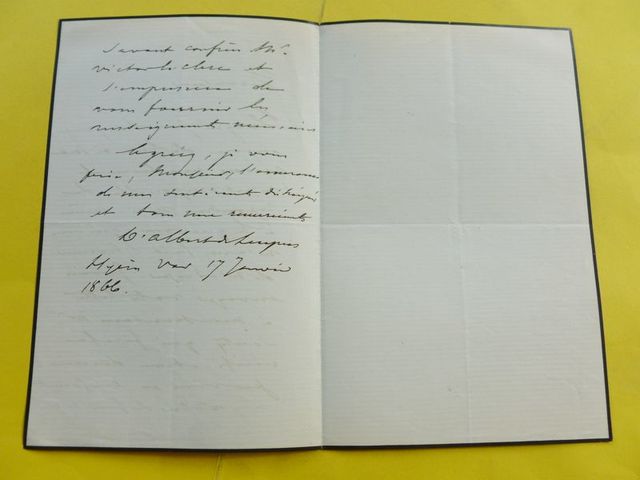 savant confrère Mr
victor le clerc et
s'empressera de
vous fournir les
renseignements nécessaires
Agréez, je vous
prie, Monsieur, l'assurance
de mes sentiments distingués
et tous mes remerciements
Dr Albert de
Hyères Var 17 Janvier
1866.